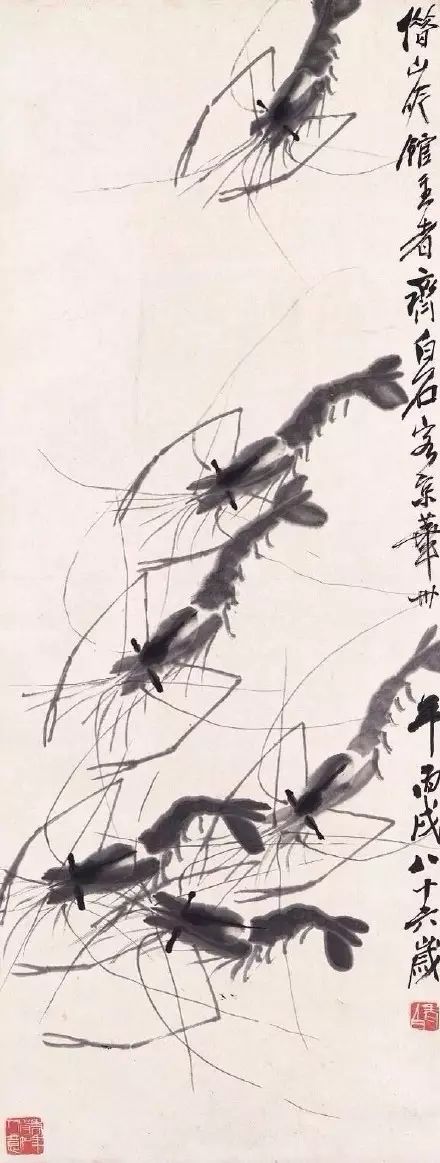 借山吟館主者齊白石客京華卅年丙戌八十六歲